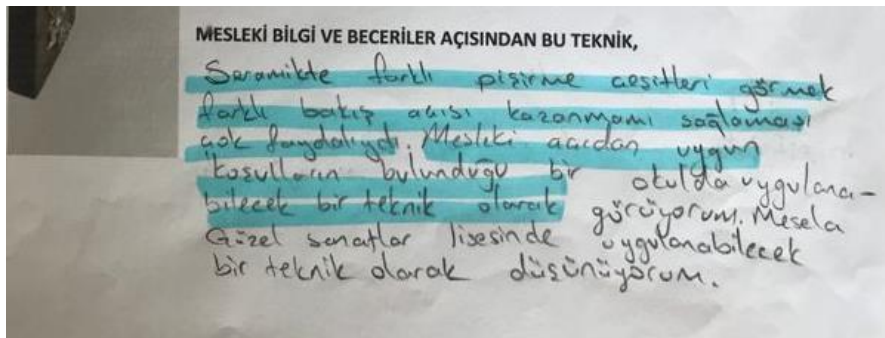 MESLEKİ BİLGİ VE BECERİLER AÇISINDAN BU TEKNİK,
Seramikte farklı pişirme çeşitleri görmek
farklı bakış açısı kazanmamı sağlaması
çok faydalıydı. Mesleki açıdan uygun
koşulların bulunduğu bir okulda uygulana-
bilecek bir teknik olarak görüyorum. Mesela
Güzel sanatlar lisesinde uygulanabilecek
bir teknik olarak düşünüyorum.